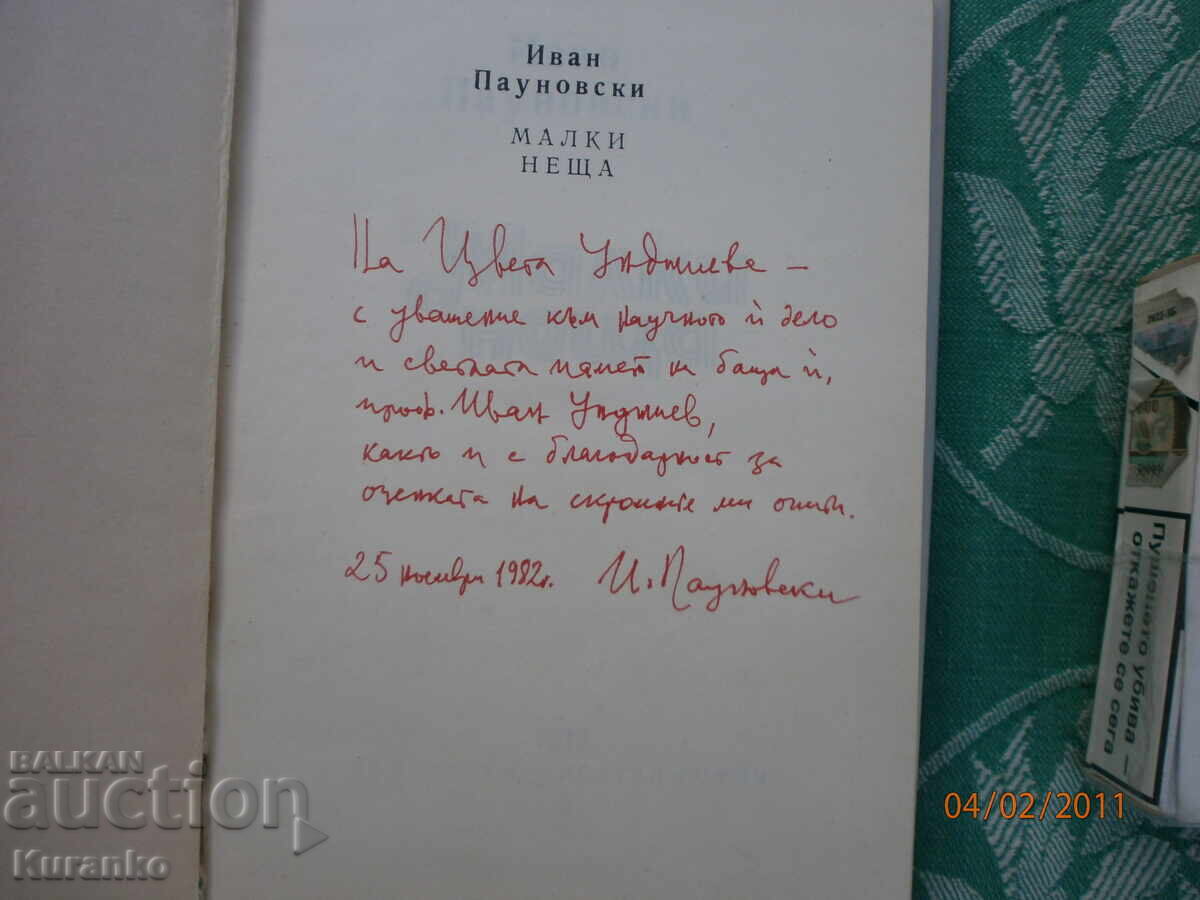 Иван
Пауновски
МАЛКИ
НЕЩА
На Цвета Унджиева –
с уважение към научното ѝ дело
и светлата памет на баща ѝ,
проф. Иван Унджиев,
както и с благодарност за
оценката на скромните ми опити.
25 ноември 1982г. И. Пауновски
Пушенето убива –
откажете се сега
04/02/2011
BALKAN
auction
Kuranko